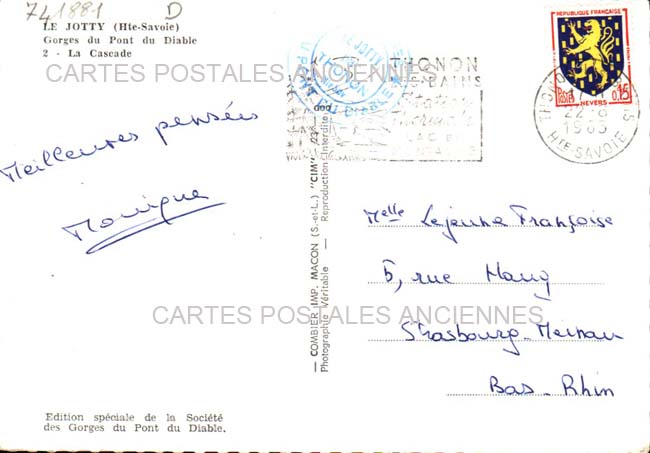 741881 D
LE JOTTY (Hte-Savoie)
Gorges du Pont du Diable
2 - La Cascade
CARTES POSTALES ANCIENNES
Meilleures pensées
Monique
LE JOTTY
THONON
THONON
LES-BAINS
Station
Thermale
LAC ET
REPUBLIQUE FRANÇAISE
POSTES
0,15
NEVERS
22-8
1965
HTE-SAVOIE
— COMBIER IMP. MACON (S.-et-L.) "CIM" —
Photographie Véritable — Reproduction Interdite
Melle Lejeune Françoise
5, rue Haug
CARTES POSTALES ANCIENNES
Strasbourg-Meinau
Bas-Rhin
Edition spéciale de la Société
des Gorges du Pont du Diable.